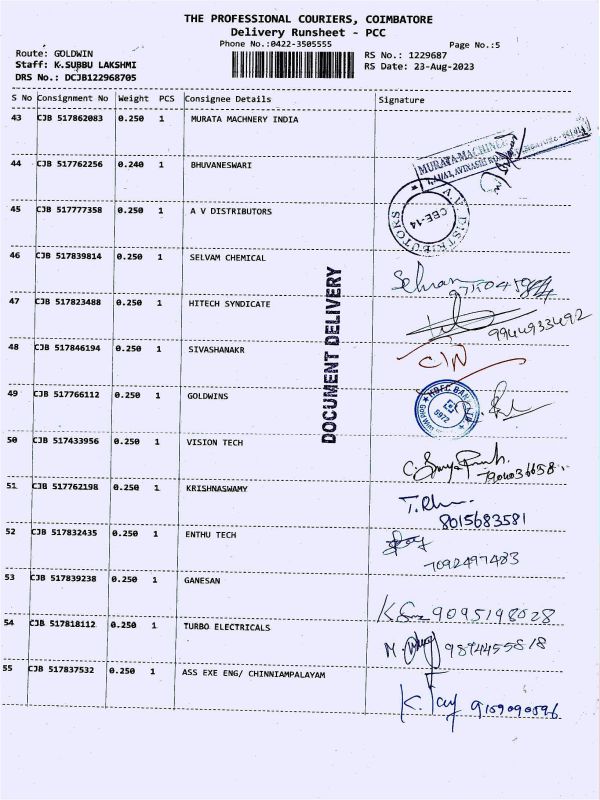 THE PROFESSIONAL COURIERS, COIMBATORE
Delivery Runsheet - PCC
Phone No.:0422-3505555
Page No.:5
Route: GOLDWIN
Staff: K.SUBBU LAKSHMI
DRS No.: DCJB122968705
RS No.: 1229687
RS Date: 23-Aug-2023
S No Consignment No Weight PCS Consignee Details Signature
43 CJB 517862083 0.250 1 MURATA MACHNERY INDIA
MURATA MACHINERY
44 CJB 517762256 0.240 1 BHUVANESWARI
45 CJB 517777358 0.250 1 A V DISTRIBUTORS
A.V. DISTRIBUTORS
CBE-14
46 CJB 517839814 0.250 1 SELVAM CHEMICAL
47 CJB 517823488 0.250 1 HITECH SYNDICATE
9944933492
48 CJB 517846194 0.250 1 SIVASHANAKR
49 CJB 517766112 0.250 1 GOLDWINS
HDFC BANK LTD
5972
50 CJB 517433956 0.250 1 VISION TECH
7904036658
51 CJB 517762198 0.250 1 KRISHNASWAMY
8015683581
52 CJB 517832435 0.250 1 ENTHU TECH
7092497483
53 CJB 517839238 0.250 1 GANESAN
9095198028
54 CJB 517818112 0.250 1 TURBO ELECTRICALS
9894455818
55 CJB 517837532 0.250 1 ASS EXE ENG/ CHINNIAMPALAYAM
K. Jay 9159090596
DOCUMENT DELIVERY